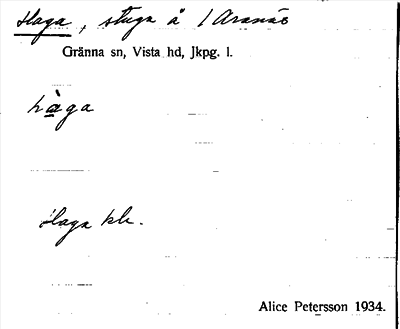 Haga, stuga å 1 Aranäs
Gränna sn, Vista hd, Jkpg. l.
hàga
Haga kk.
Alice Petersson 1934.